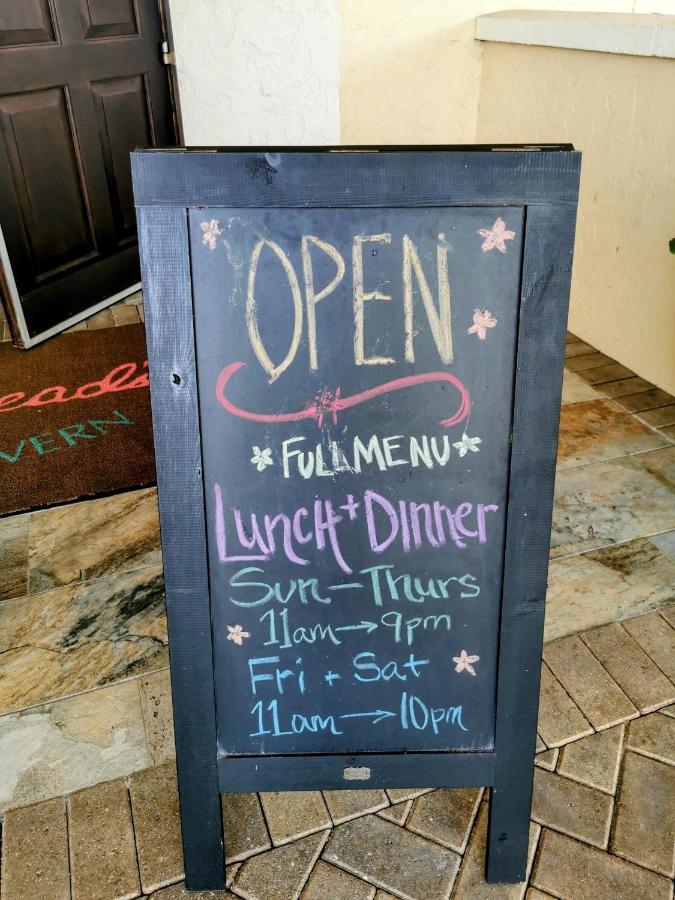 OPEN
FULL MENU
Lunch + Dinner
Sun - Thurs
11am → 9pm
Fri + Sat
11am → 10pm